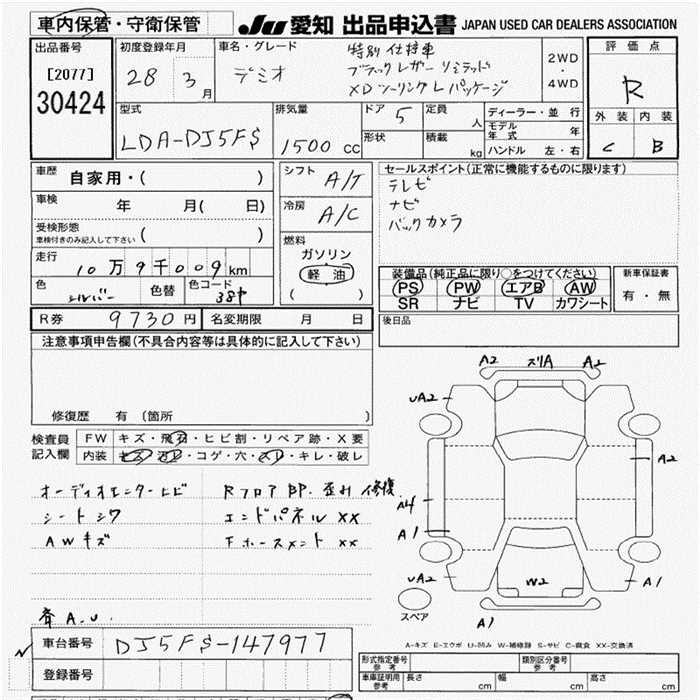 車内保管・守衛保管
JU 愛知 出品申込書 JAPAN USED CAR DEALERS ASSOCIATION
出品番号
[2077]
30424
初度登録年月
28 3月
車名・グレード
デミオ
特別仕様車
ブラックレザーリミテッド
XDツーリングLパッケージ
2WD
・
4WD
評価点
R
外装 内装
C B
型式
LDA-DJ5FS
排気量
1500 cc
ドア 5
形状
定員 人
積載 kg
ディーラー・並行
モデル年式 年
ハンドル 左・右
車歴 自家用・( )
車検 年 月( 日)
受検形態
車検付きのみ記入して下さい ( )
走行 10万9千009km
色 シルバー 色替 色コード 38P
シフト A/T
冷房 A/C
燃料
ガソリン
軽油
( )
セールスポイント(正常に機能するものに限ります)
テレビ
ナビ
バックカメラ
装備品(純正品に限り○をつけてください)
PS PW エアB AW
SR ナビ TV カワシート
新車保証書
有・無
R券 9730円 名変期限 月 日
後日品
注意事項申告欄(不具合内容等は具体的に記入して下さい)
修復歴 有 (箇所 )
検査員記入欄
FW キズ・飛石・ヒビ割・リペア跡・X要
内装 キズ・汚レ・コゲ・穴・スレ・キレ・破レ
オーディオモニターヒビ
シートシワ
AWキズ
RフロアBP.歪み修復
エンドパネルXX
Fホースメント XX
斉 A.U.
A2 スリA A2
uA2
A2
A4
A1
uA2
W2
A1
A1
スペア
A-キズ E-エクボ U-凹み W-補修跡 S-サビ C-腐食 XX-交換済
車台番号 DJ5FS-147977
登録番号
形式指定番号 参考
類別区分番号 参考
車庫証明用 参考
長さ cm 幅 cm 高さ cm